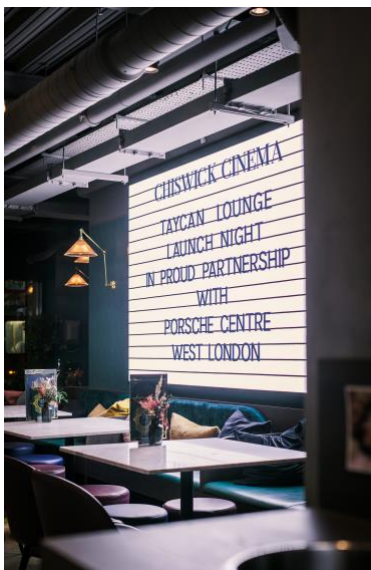 CHISWICK CINEMA
TAYCAN LOUNGE
LAUNCH NIGHT
IN PROUD PARTNERSHIP
WITH
PORSCHE CENTRE
WEST LONDON